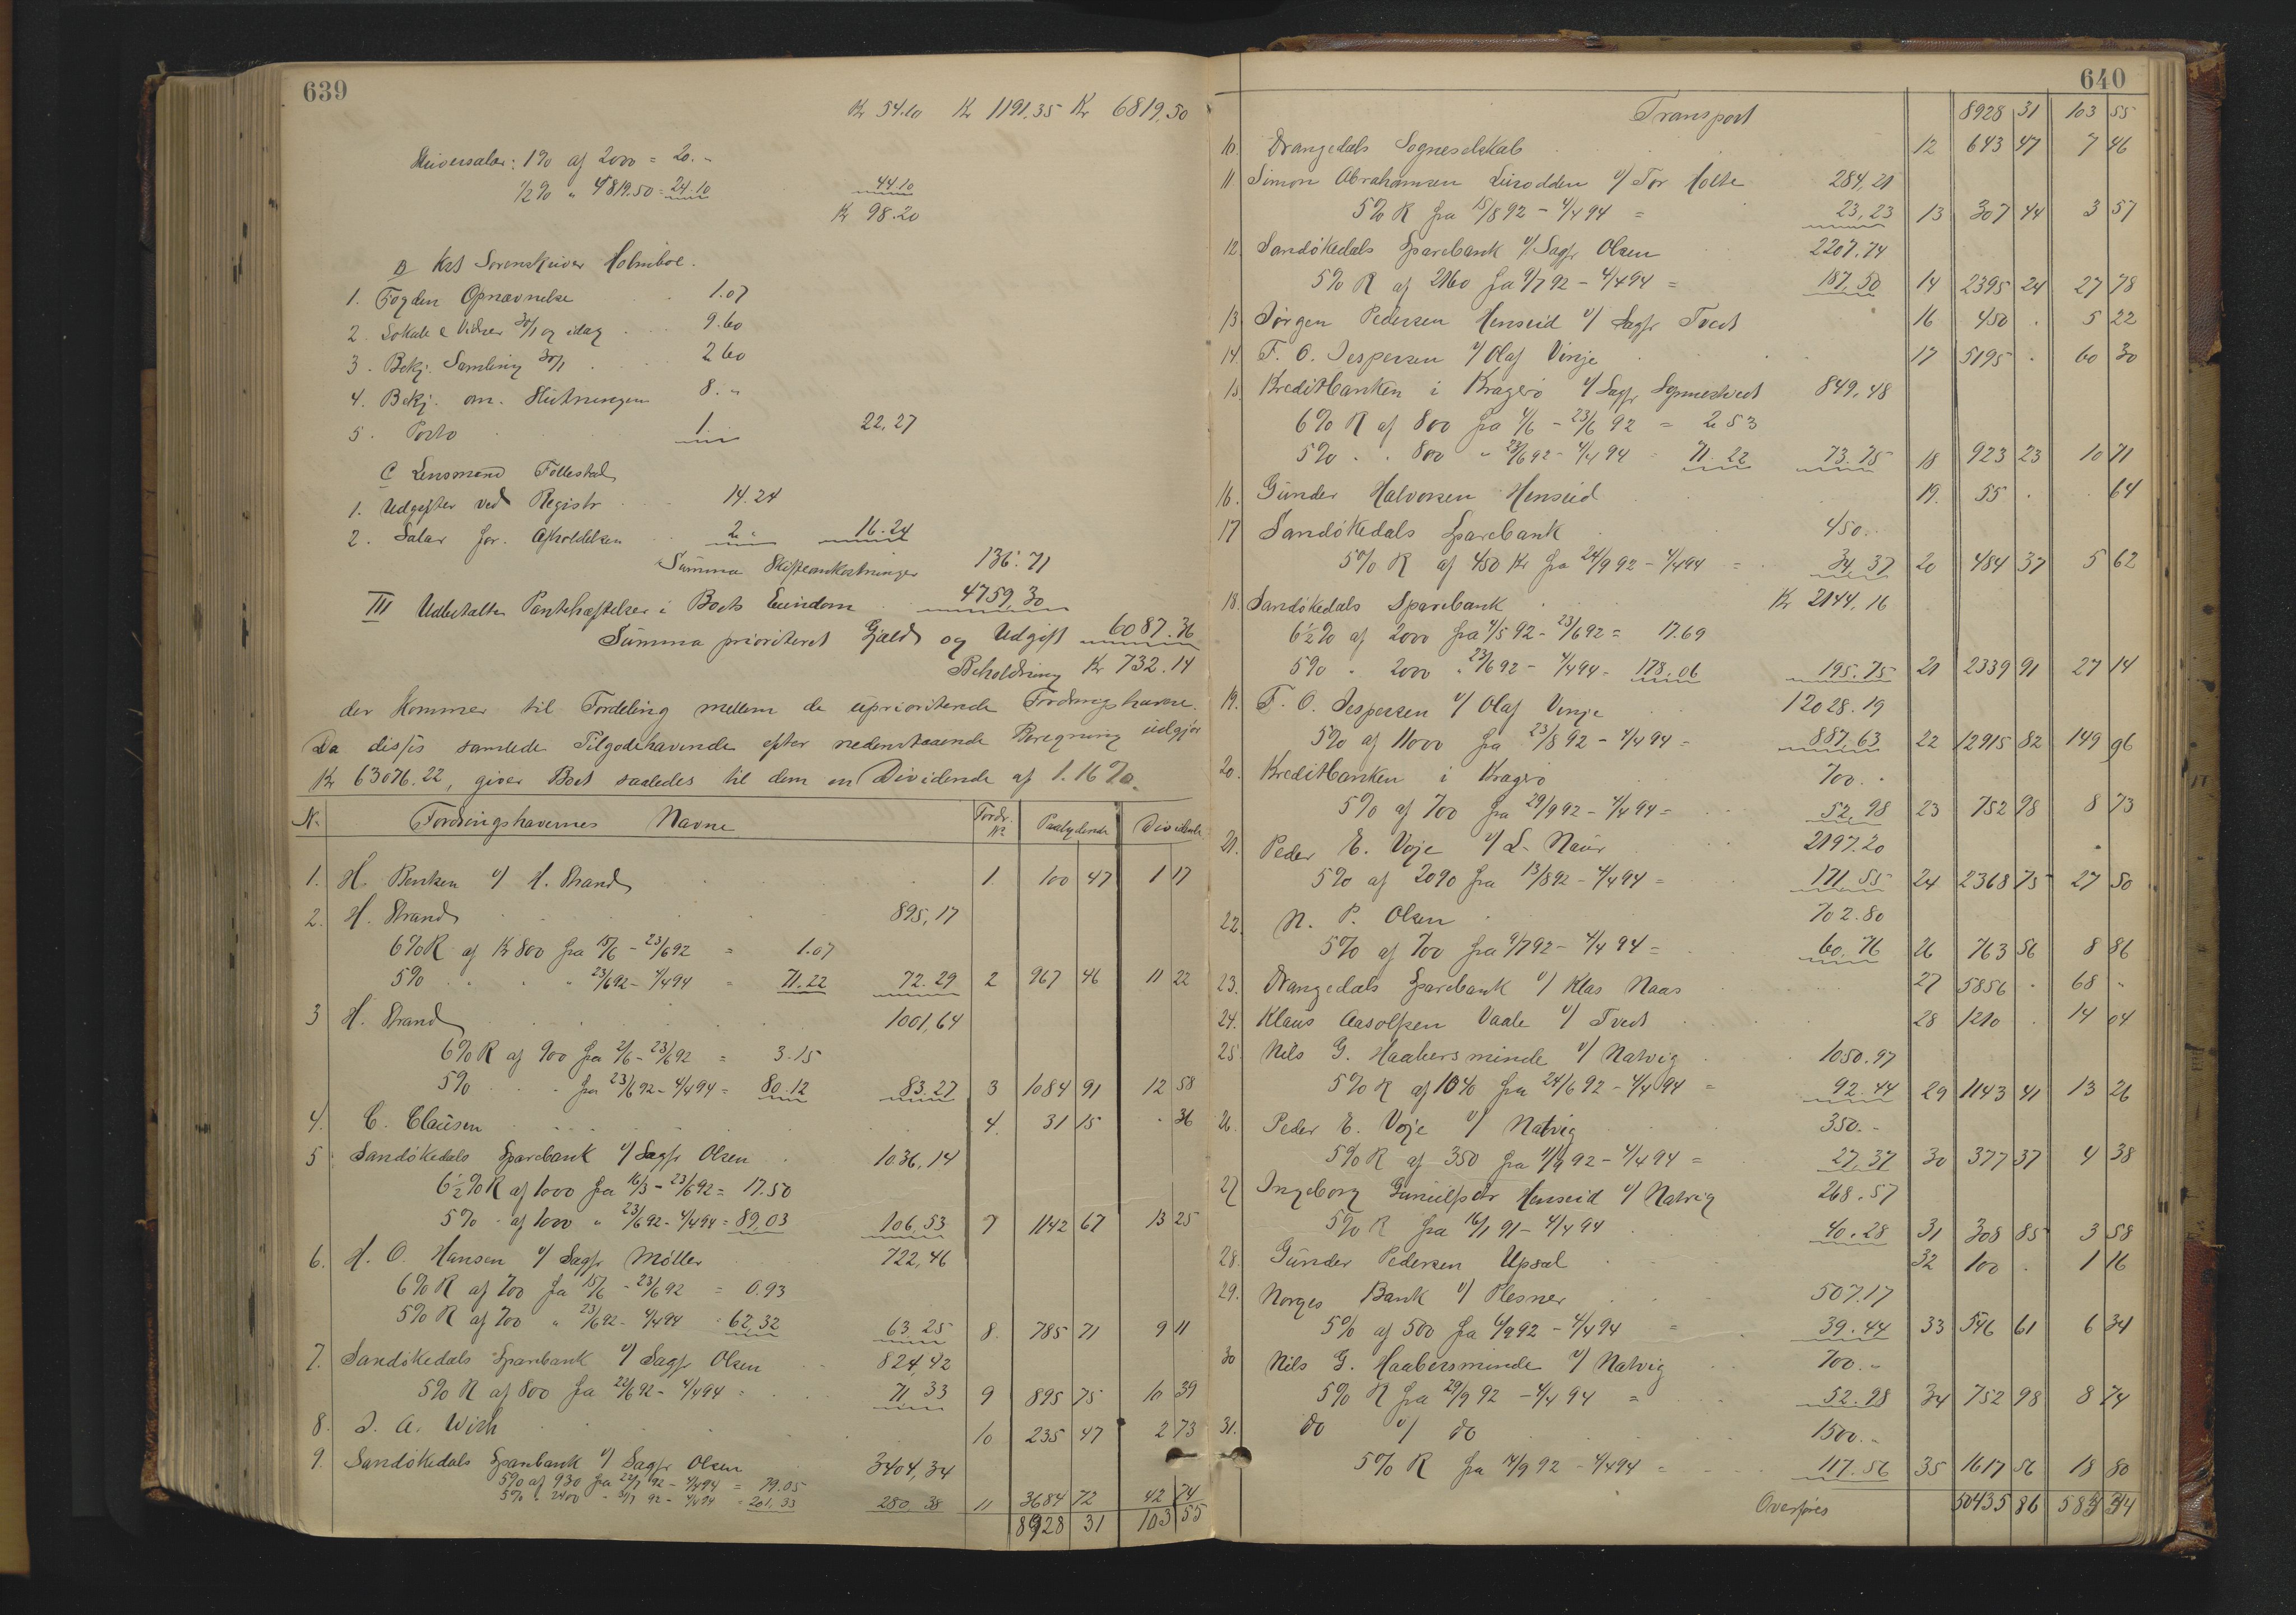 639
Kr 54.10 Kr 1191,35 Kr 6819,50
1% af 2000 = 20.-
½% " 4819.50 = 24.10 44.10
Kr 98.20
B Kst Sorenskriver Holmboe.
1. Fogden Opnævnelse 1.07
2. Lokale & Vidner 30/1 og idag 9.60
3. Bekj. Samling 30/1 2 60
4. Bekj. om Slutningen 8. "
5. Porto 1 " 22,27
C Lensmand Föllestad
1. Udgifter ved Registr 14.24
2. Salar for Afholdelsen 2 " 16.24
Summa Skifteomkostninger 136.71
III Udbetalte Pantehæftelser i Boets Eiendom 4759,30
Summa prioriteret Gjæld og Udgift 6087.36
Beholdning Kr 732.14
der kommer til Fordeling mellem de uprioriterede Fordringshavere.
Da disses samlede Tilgodehavende efter nedenstaaende Beregning udgjør
Kr 63076.22, giver Boet saaledes til dem en Dividende af 1.16%.
N. Fordringshavernes Navne Fordr. N° Paalydende Dividende
1. H. Bentsen v/ H. Strand 1. 100 47 1 17
2. H. Strand 895,17
6% R af Kr 800 fra 15/6 - 23/6 92 = 1.07
5% " " 23/6 92 - 4/4 94 = 71.22 72.29 2 967 46 11 22
3 H. Strand 1001,64
6% R af 900 fra 2/6 - 23/6 92 = 3.15
5% fra 23/6 92 - 4/4 94 = 80.12 83.27 3 1084 91 12 58
4. C. Clausen 4. 31 15 - 36
5 Sandøkedals Sparebank v/ Sagfr Olsen 1036,14
6½% R af 1000 fra 16/3 - 23/6 92 = 17.50
5% - af 1000 " 23/6 92 - 4/4 94 = 89,03 106,53 7 1142 67 13 25
6. H. O. Hansen v/ Sagfr Møller 722,46
6% R af 700 fra 15/6 - 23/6 92 = 0.93
5% R af 700 " 23/6 92 - 4/4 94 = 62,32 63.25 8. 785 71 9 11
7. Sandøkedals Sparebank v/ Sagfr Olsen 824,42
5% R af 800 fra 22/6 92 - 4/4 94 = 71 33 9 895 75 10 39
8. J. A. Wirh 10 235 47 2 73
9. Sandøkedals Sparebank v/ Sagfr Olsen 3404,34
5% af 930 fra 22/7 92 - 4/4 94 = 79.05
5% " 2400 - 31/7 92 - 4/4 94 = 201,33 280,38 11 3684 72 42 74
8928 31 103 55
640
Transport 8928 31 103 55
10. Drangedals Sogneselskab 12 643 47 7 46
11 Simon Abrahamsen v/ Tor Holte 284,21
5% R fra 15/8 92 - 4/4 94 = 23,23 13 307 44 3 57
12. Sandøkedals Sparebank v/ Sagfr Olsen 2207.74
5% R af 2160 fra 9/7 92 - 4/4 94 = 187,50 14 2395 24 27 78
13. Jørgen Pedersen Henseid v/ Sagfr Tvedt 16 450 . 5 22
14. F. O. Jespersen v/ Olaf Vinje 17 5195 . 60 30
15. Kreditbanken i Kragerø v/ Sagfr 849,48
6% R af 800 fra 4/6 - 23/6 92 = 2 53
5% " 800 " 23/6 92 - 4/4 94 = 71.22 73.75 18 923 23 10 71
16. Gunder Halvorsen Henseid 19. 55 . . 64
17 Sandøkedals Sparebank 450..
5% R af 450 Kr fra 24/9 92 - 4/4 94 = 34,37 20 484 37 5 62
18. Sandøkedals Sparebank Kr 2144,16
6½% af 2000 fra 4/5 92 - 23/6 92 = 17.69
5% " 2000 " 23/6 92 - 4/4 94 = 178,06 195.75 21 2339 91 27 14
19. F. O. Jespersen v/ Olaf Vinje 12028.19
5% af 11000 fra 23/8 92 - 4/4 94 = 887,63 22 12915 82 149 96
20. Kreditbanken i Kragerø 700. -
5% af 700 fra 29/9 92 - 4/4 94 = 52,98 23 752 98 8 73
21. Peder E. Voje v/ L. Naur 2197.20
5% af 2090 fra 13/8 92 - 4/4 94 = 171,55 24 2368 75 27 50
22. N. P. Olsen 702.80
5% af 700 fra 9/7 92 - 4/4 94 = 60,76 26 763 56 8 86
23. Drangedals Sparebank v/ Klas Naas 27 5856 . 68 "
24. Klaus Aasolfsen Vaale v/ Tvedt 28 1210 . 14 04
25. Nils G. Haabersminde v/ Natvig 1050.97
5% R af 1040 fra 24/6 92 - 4/4 94 = 92.44 29 1143 41 13 26
26. Peder E. Voje v/ Natvig 350. -
5% R af 350 fra 11/9 92 - 4/4 94 = 27,37 30 377 37 4 38
27 Ingeborg Henseid v/ Natvig 268.57
5% R fra 16/1 91 - 4/4 94 40.28 31 308 85 3 58
28. Gunder Pedersen Upsal 32 100 . 1 16
29. Norges Bank v/ Plesner 507.17
5% af 500 fra 4/9 92 - 4/4 94 = 39.44 33 546 61 6 34
30 Nils G. Haabersminde v/ Natvig 700. "
5% R fra 29/9 92 - 4/4 94 = 52.98 34 752 98 8 74
31. do v/ do 1500. -
5% R fra 14/9 92 - 4/4 94 = 117.56 35 1617 56 18 80
Overføres 50435 86 583 34